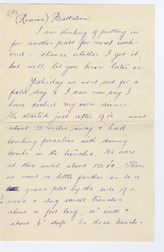 (Reserve) Battalion.
I am thinking of putting in
for another pass for next week-
end - chance whether I get it,
but will let you know later on.
Yesterday we went out for a
field day & I can now say I
have cooked my own dinner.
We started just after 9 & went
about miles away & had
bombing practice with dummy
bombs in the trenches. We were
at this until about Then
we went a little farther on to a
grass plot by the side of a
wood & dug small trenches
about a foot long, 10" wide &
about 6" deep. In these trench-